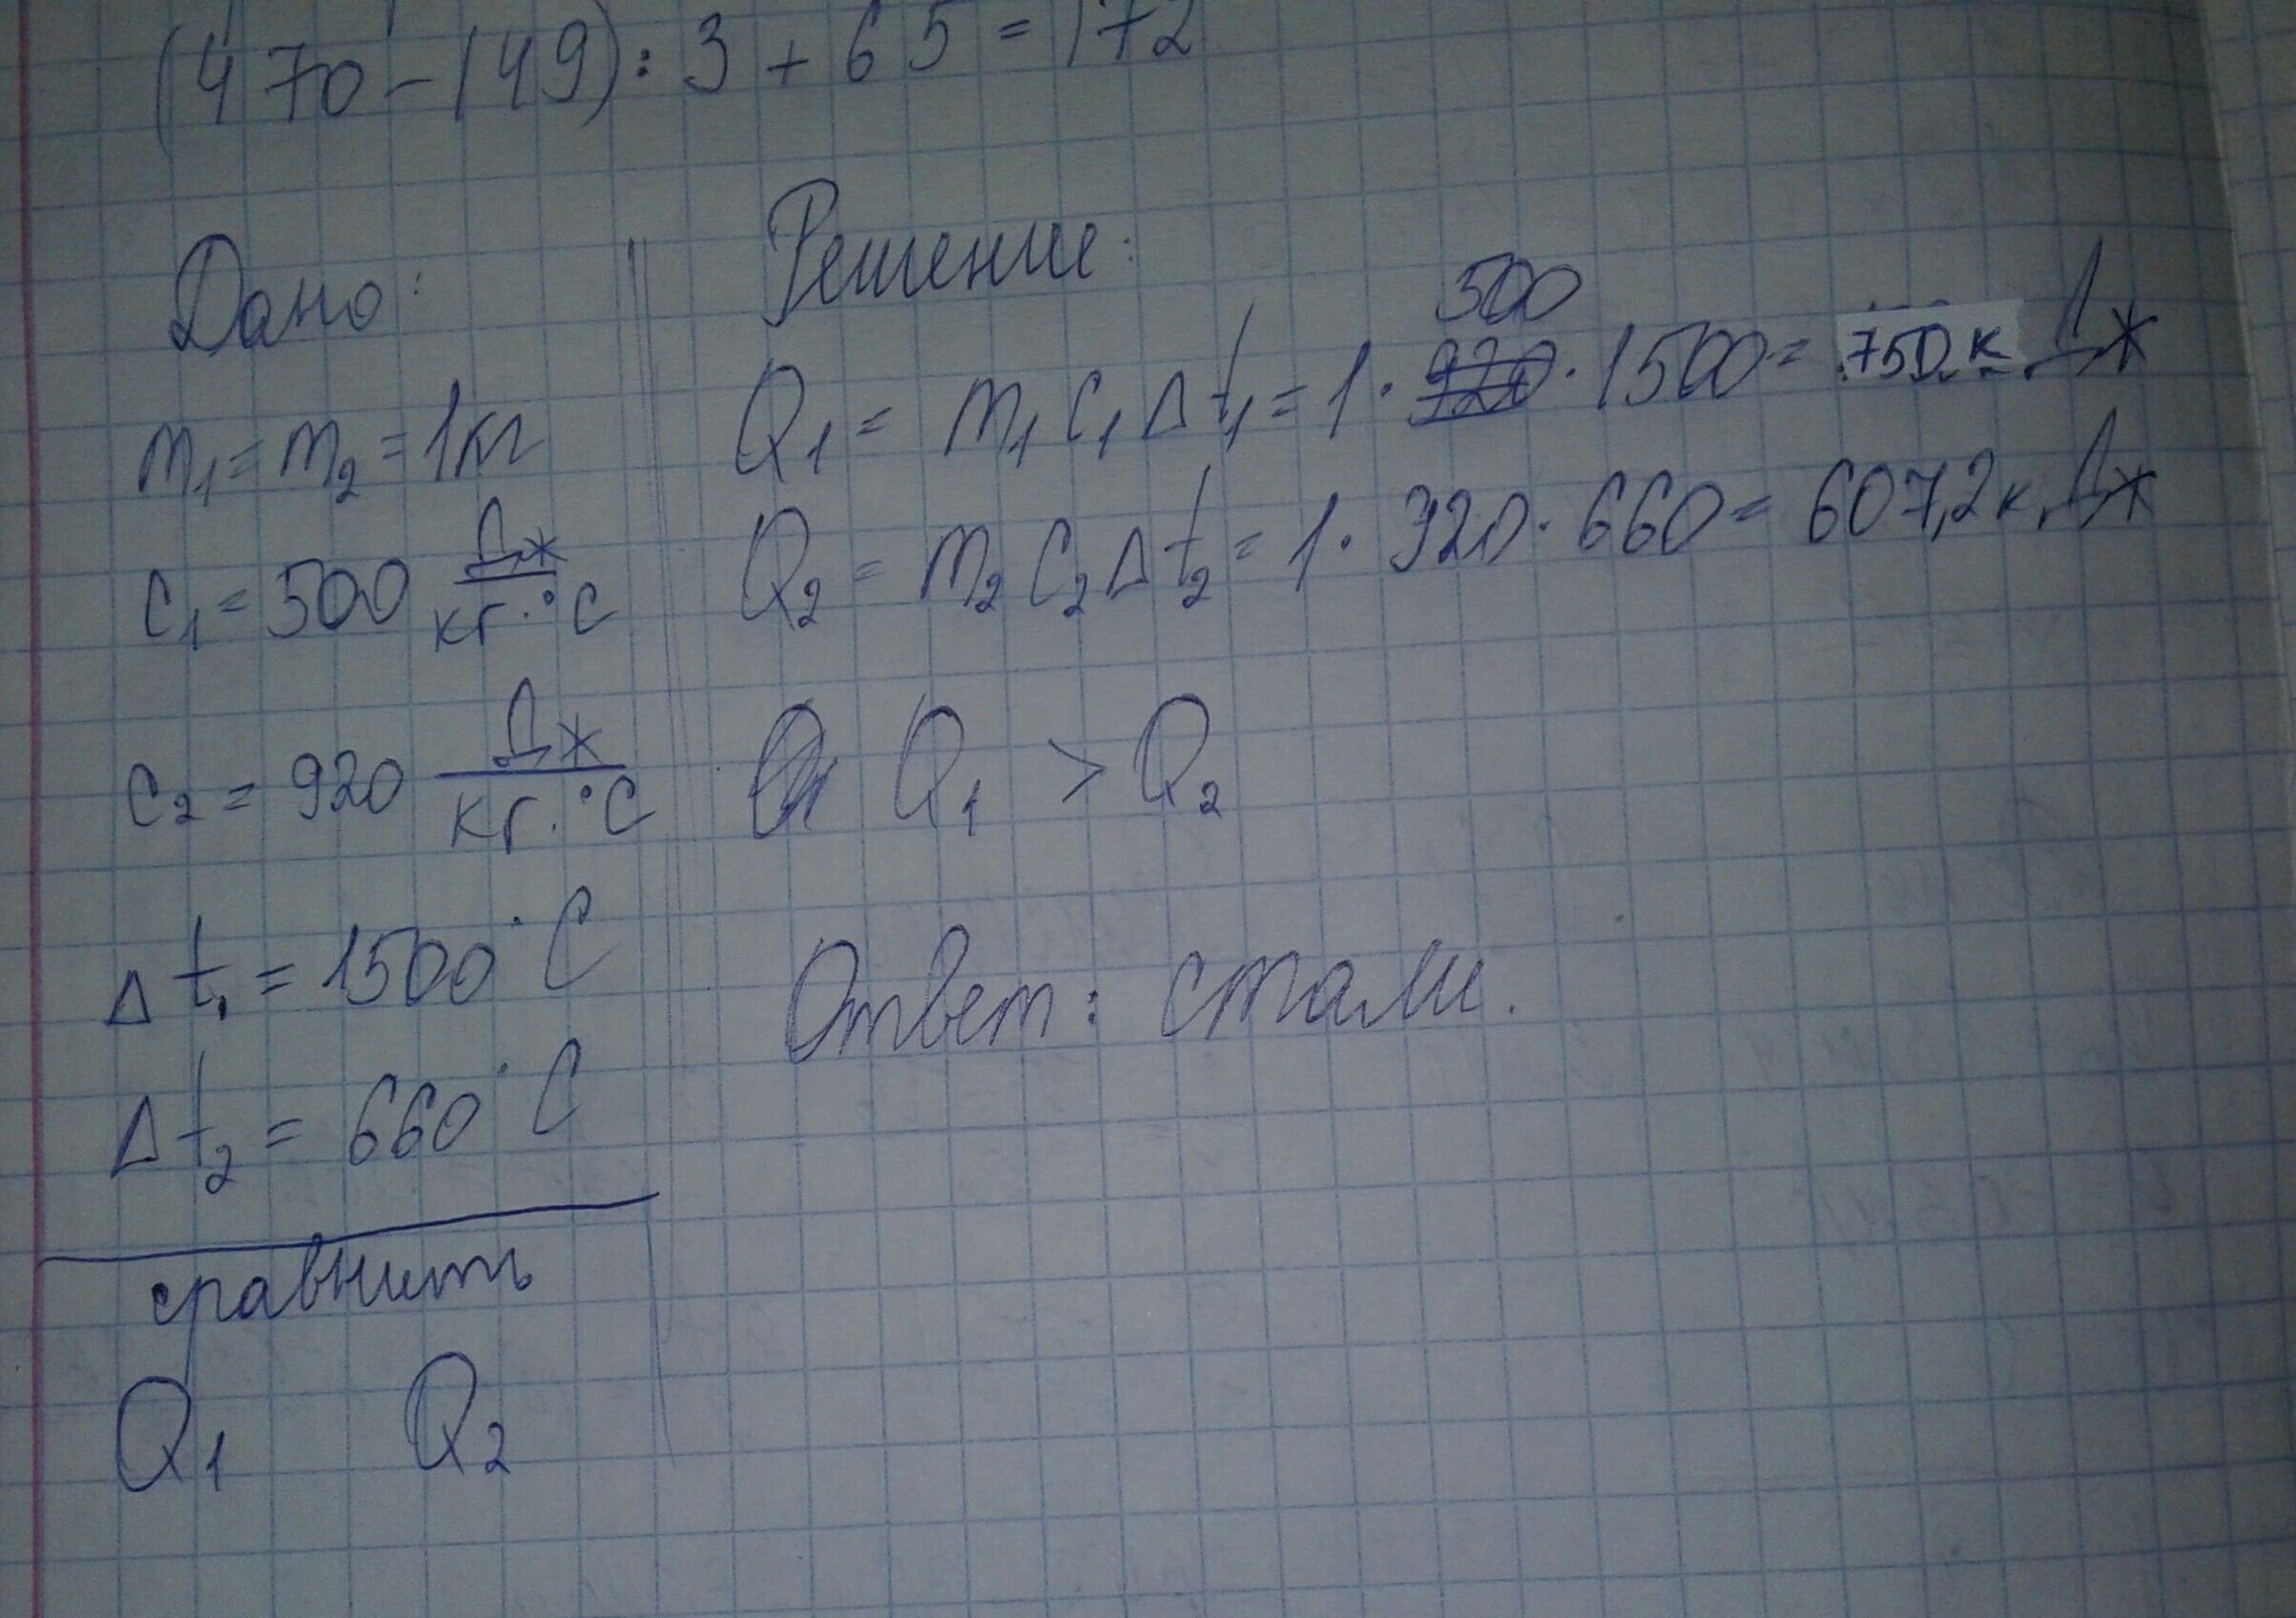 (470-149):3+65=172
Дано:
m₁=m₂=1кг
c₁=500 Дж/кг·°С
c₂=920 Дж/кг·°С
Δt₁=1500°С
Δt₂=660°С
сравнить
Q₁ Q₂
Решение:
500
Q₁=m₁c₁Δt₁=1·920·1500=750 кДж
Q₂=m₂c₂Δt₂=1·920·660=607,2кДж
Q₁ > Q₂
Ответ: стали.